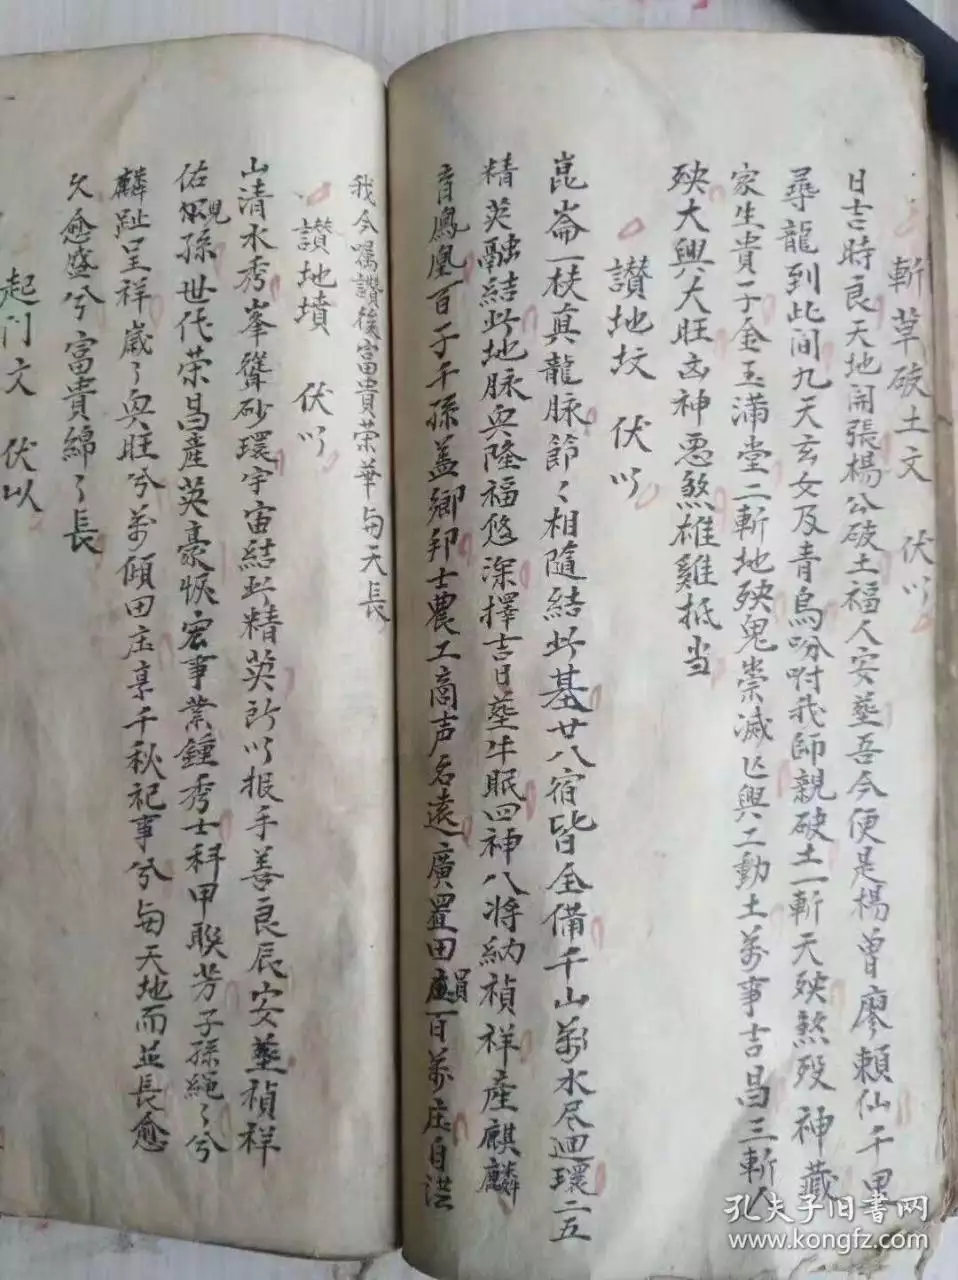 斬草破土文　伏以
日吉時良天地開張楊公破土福人安塟吾今便是楊曾廖賴仙千里
尋龍到此间九天玄女及青鳥吩咐我師親破土一斬天殃煞殁神藏
家生貴子金玉滿堂二斬地殃鬼祟滅亡興工動土萬事吉昌三斬人
殃大興大旺凶神惡煞雄雞抵当
讃地坟　伏以
崑崙一枝真龍脉節々相隨結此基廿八宿皆全備千山萬水尽迴環二五
精英融結此地脉興隆福悠深擇吉日塟牛眠四神八将納禎祥產麒麟
音鳳凰百子千孫盖鄉邦士農工商声名遠廣置田園一日萬庄自洪
我今囑讃後富貴荣華与天長
讃地墳　伏以
山清水秀峯聳砂環宇宙結此精英所以报手善良辰安塟禎祥
佑児孫世代荣昌產英豪恢宏事業鍾秀士科甲聨芳子孫繩々兮
麟趾呈祥歲々興旺兮萬傾田庄享千秋祀事兮与天地而並長愈
久愈盛兮富貴綿々長
起门文　伏以
孔夫子旧书网
www.kongfz.com